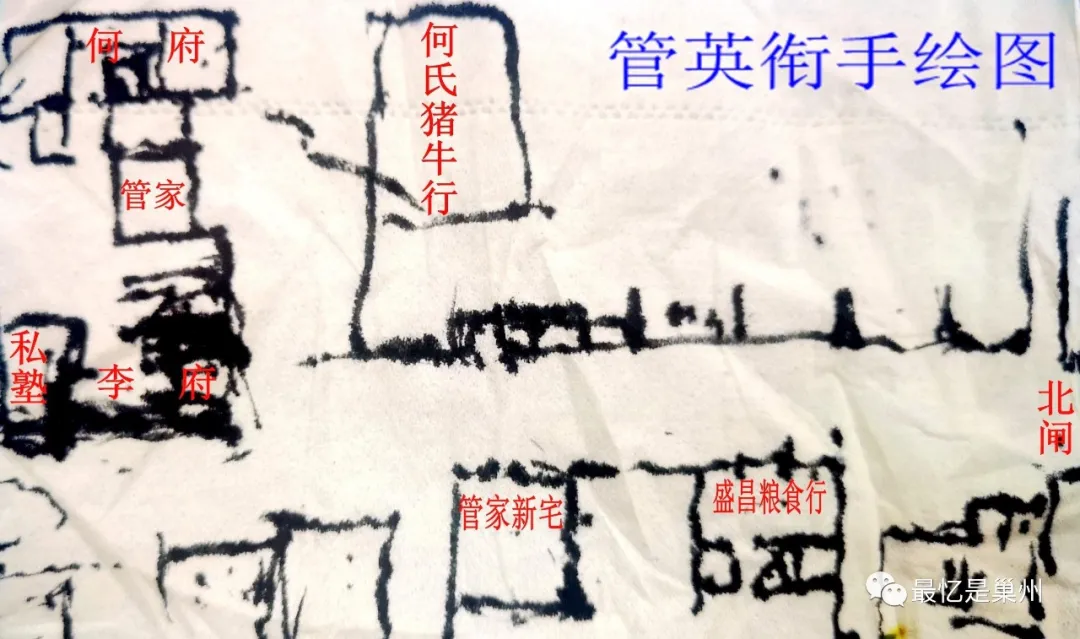 管英衔手绘图
何府
何氏猪牛行
管家
私塾
李府
北闸
管家新宅
盛昌粮食行
最忆是巢州